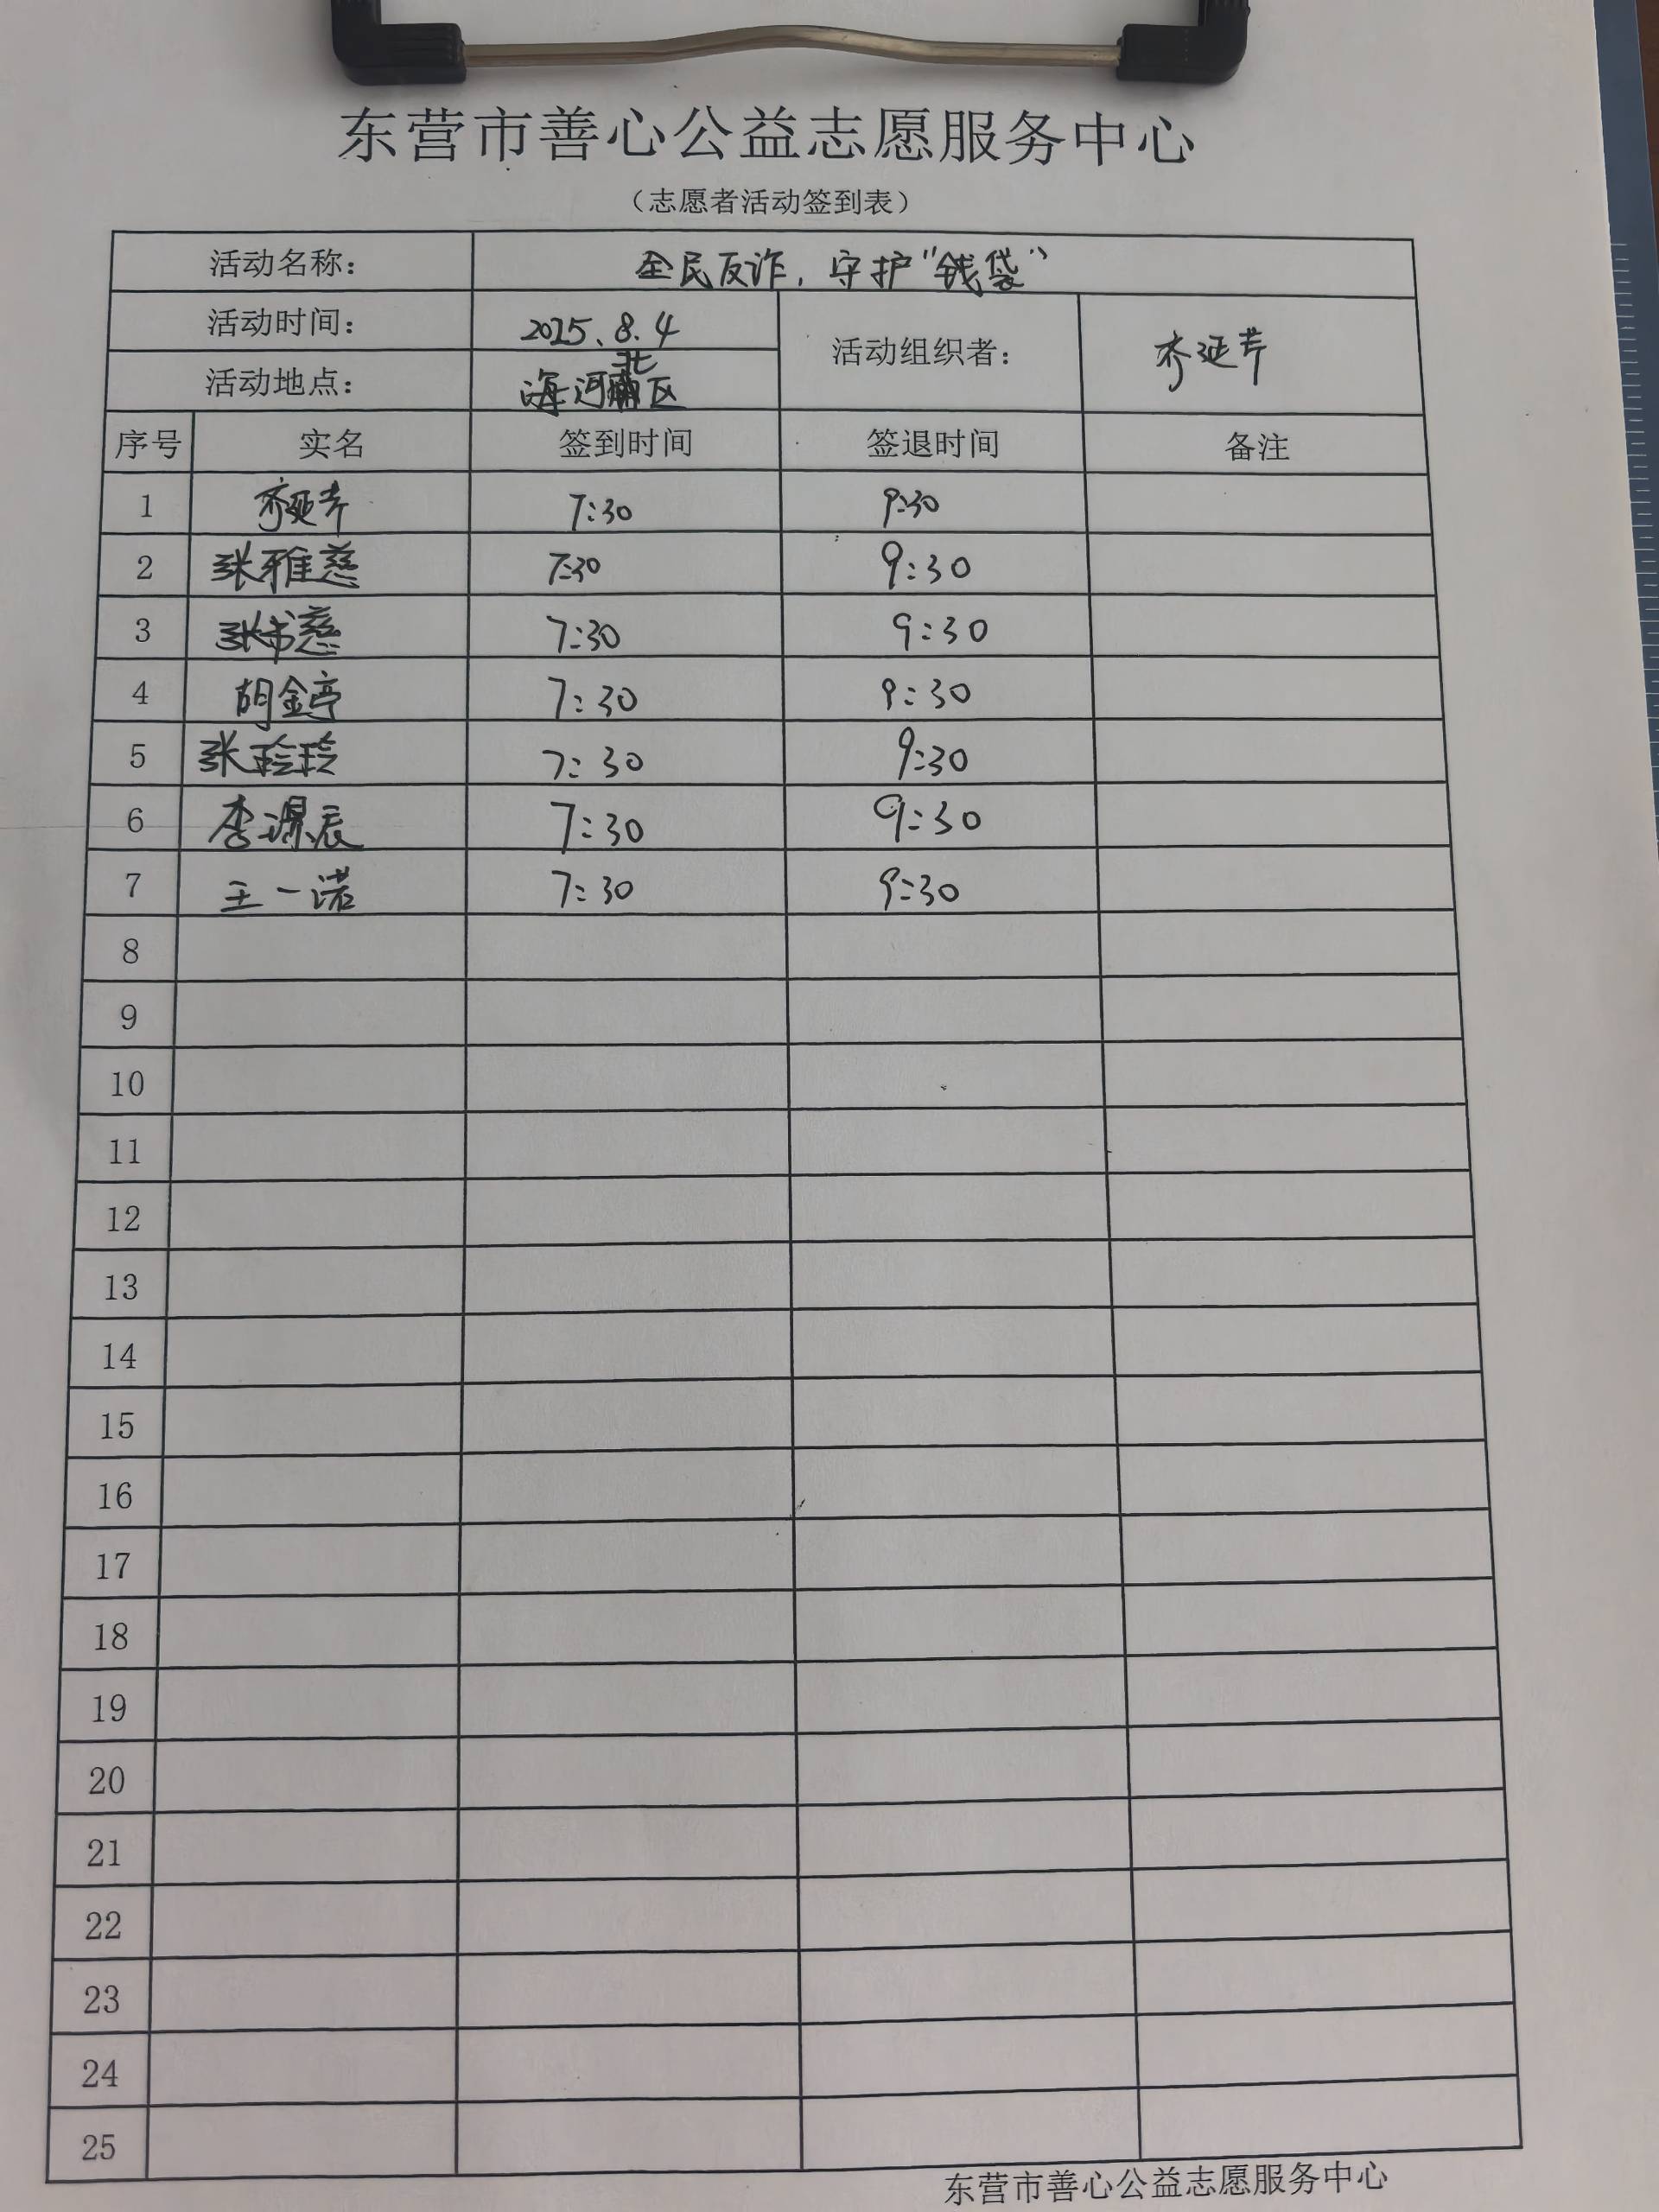 东营市善心公益志愿服务中心
（志愿者活动签到表）
活动名称： 全民反诈，守护“钱袋”
活动时间： 2025.8.4 活动组织者： 齐延芹
活动地点： 海河北区
序号 实名 签到时间 签退时间 备注
1 齐延芹 7:30 9:30
2 张雅慈 7:30 9:30
3 张书慈 7:30 9:30
4 胡金亭 7:30 9:30
5 张玲玲 7:30 9:30
6 李 辰 7:30 9:30
7 王一诺 7:30 9:30
8
9
10
11
12
13
14
15
16
17
18
19
20
21
22
23
24
25
东营市善心公益志愿服务中心